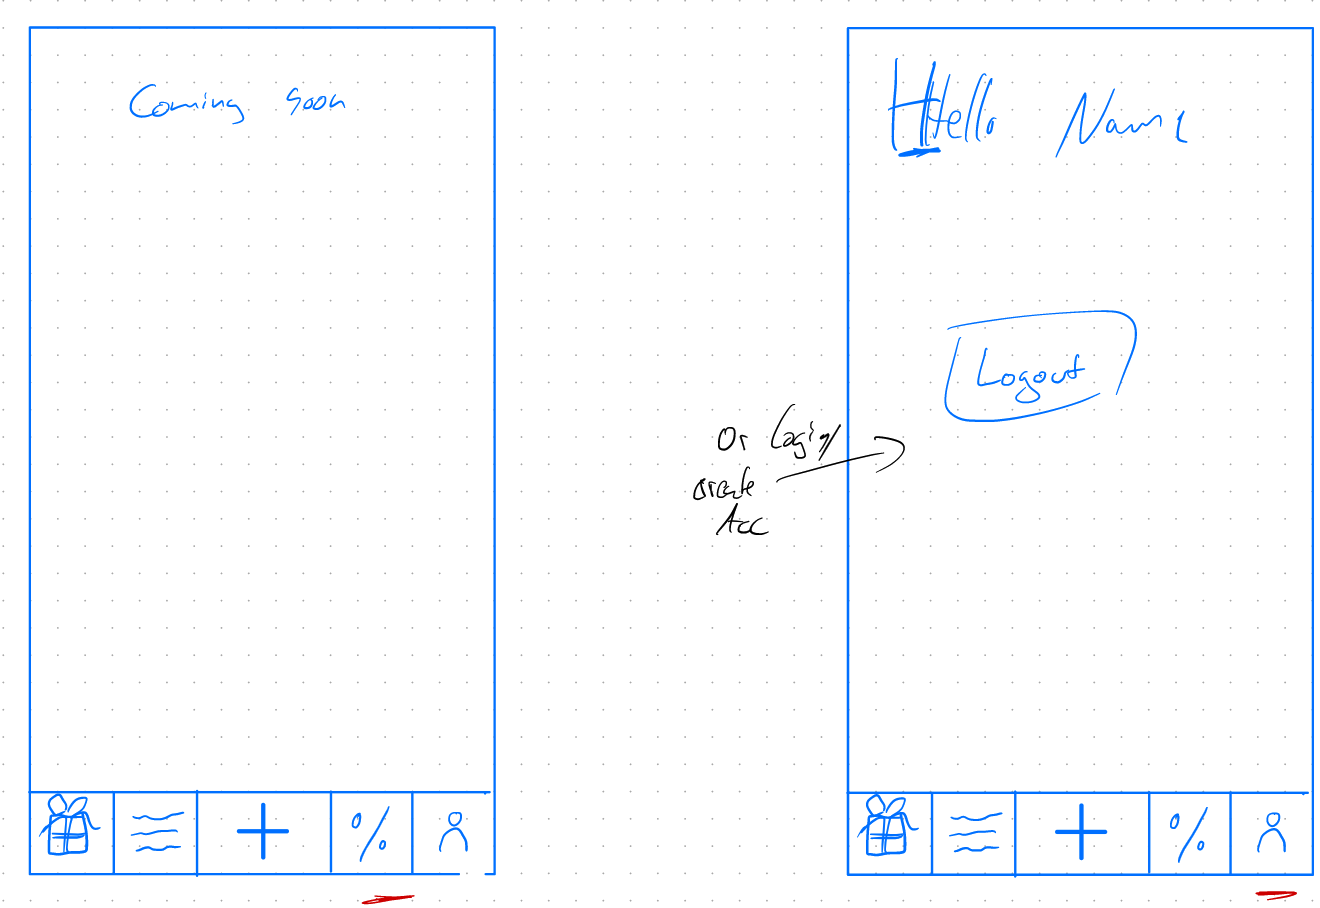 Coming soon
Hello Name
Logout
Or Login/
create
Acc
%
%